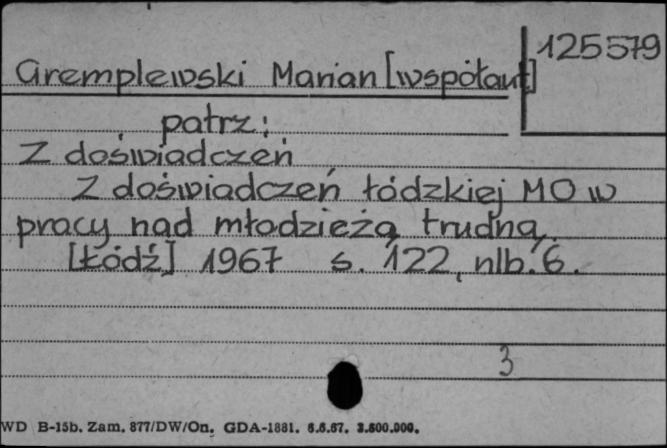 125579
Gremplewski Marian [współaut]
patrz:
Z doświadczeń
Z doświadczeń łódzkiej MO w
pracy nad młodzieżą trudną,
[Łódź] 1967 s. 122, nlb. 6.
3
WD B-15b. Zam. 877/DW/On. GDA-1881. 6.6.67. 3.500.000.